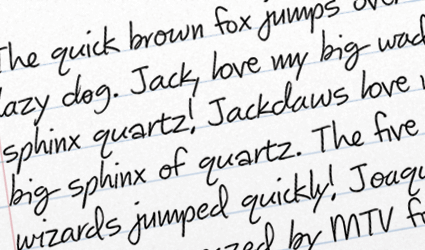 The quick brown fox jumps over
lazy dog. Jack, love my big
sphinx quartz! Jackdaws love
big sphinx of quartz. The five
wizards jumped quickly! Joaqu
by MTV